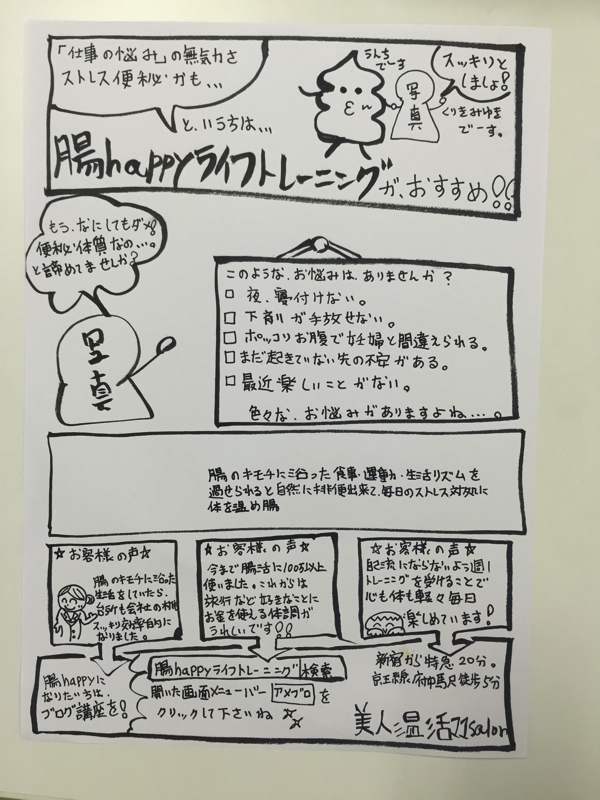 「仕事の悩み」の無気力さ
ストレス便秘かも...
うんち
でーす
スッキリと
しましょ!
写真
くりきみゆき
でーす。
と、いうちは...
腸happyライフトレーニングが、おすすめ!!
もう、なにしてもダメ!
便秘体質なの...。
と諦めてませんか?
写真
このような、お悩みは、ありませんか?
□ 夜、寝付けない。
□ 下剤が手放せない。
□ ポッコリお腹で妊婦と間違えられる。
□ まだ起きていない先の不安がある。
□ 最近楽しいことがない。
色々な、お悩みがありますよね...。
腸のキモチに沿った食事・運動・生活リズムを
過せられると自然に排便出来て、毎日のストレス対処に
体を温め腸
☆お客様の声☆
腸のキモチに沿った
生活をしていたら、
台所も会社の机
スッキリ効率的に
なりました。
☆お客様の声☆
今まで腸活に100万以上
使いました。これからは
旅行など好きなことに
お金を使える体調が
うれしいです!!
☆お客様の声☆
肥満にならないよう週1
トレーニングを受けることで
心も体も軽々毎日
楽しめています!
腸happyに
なりたいちは、
ブログ講座を!
腸happyライフトレーニング 検索
開いた画面メニューバー アメブロ を
クリックして下さいね
新宿から特急20分。
京王線、府中駅徒歩5分
美人温活 salon